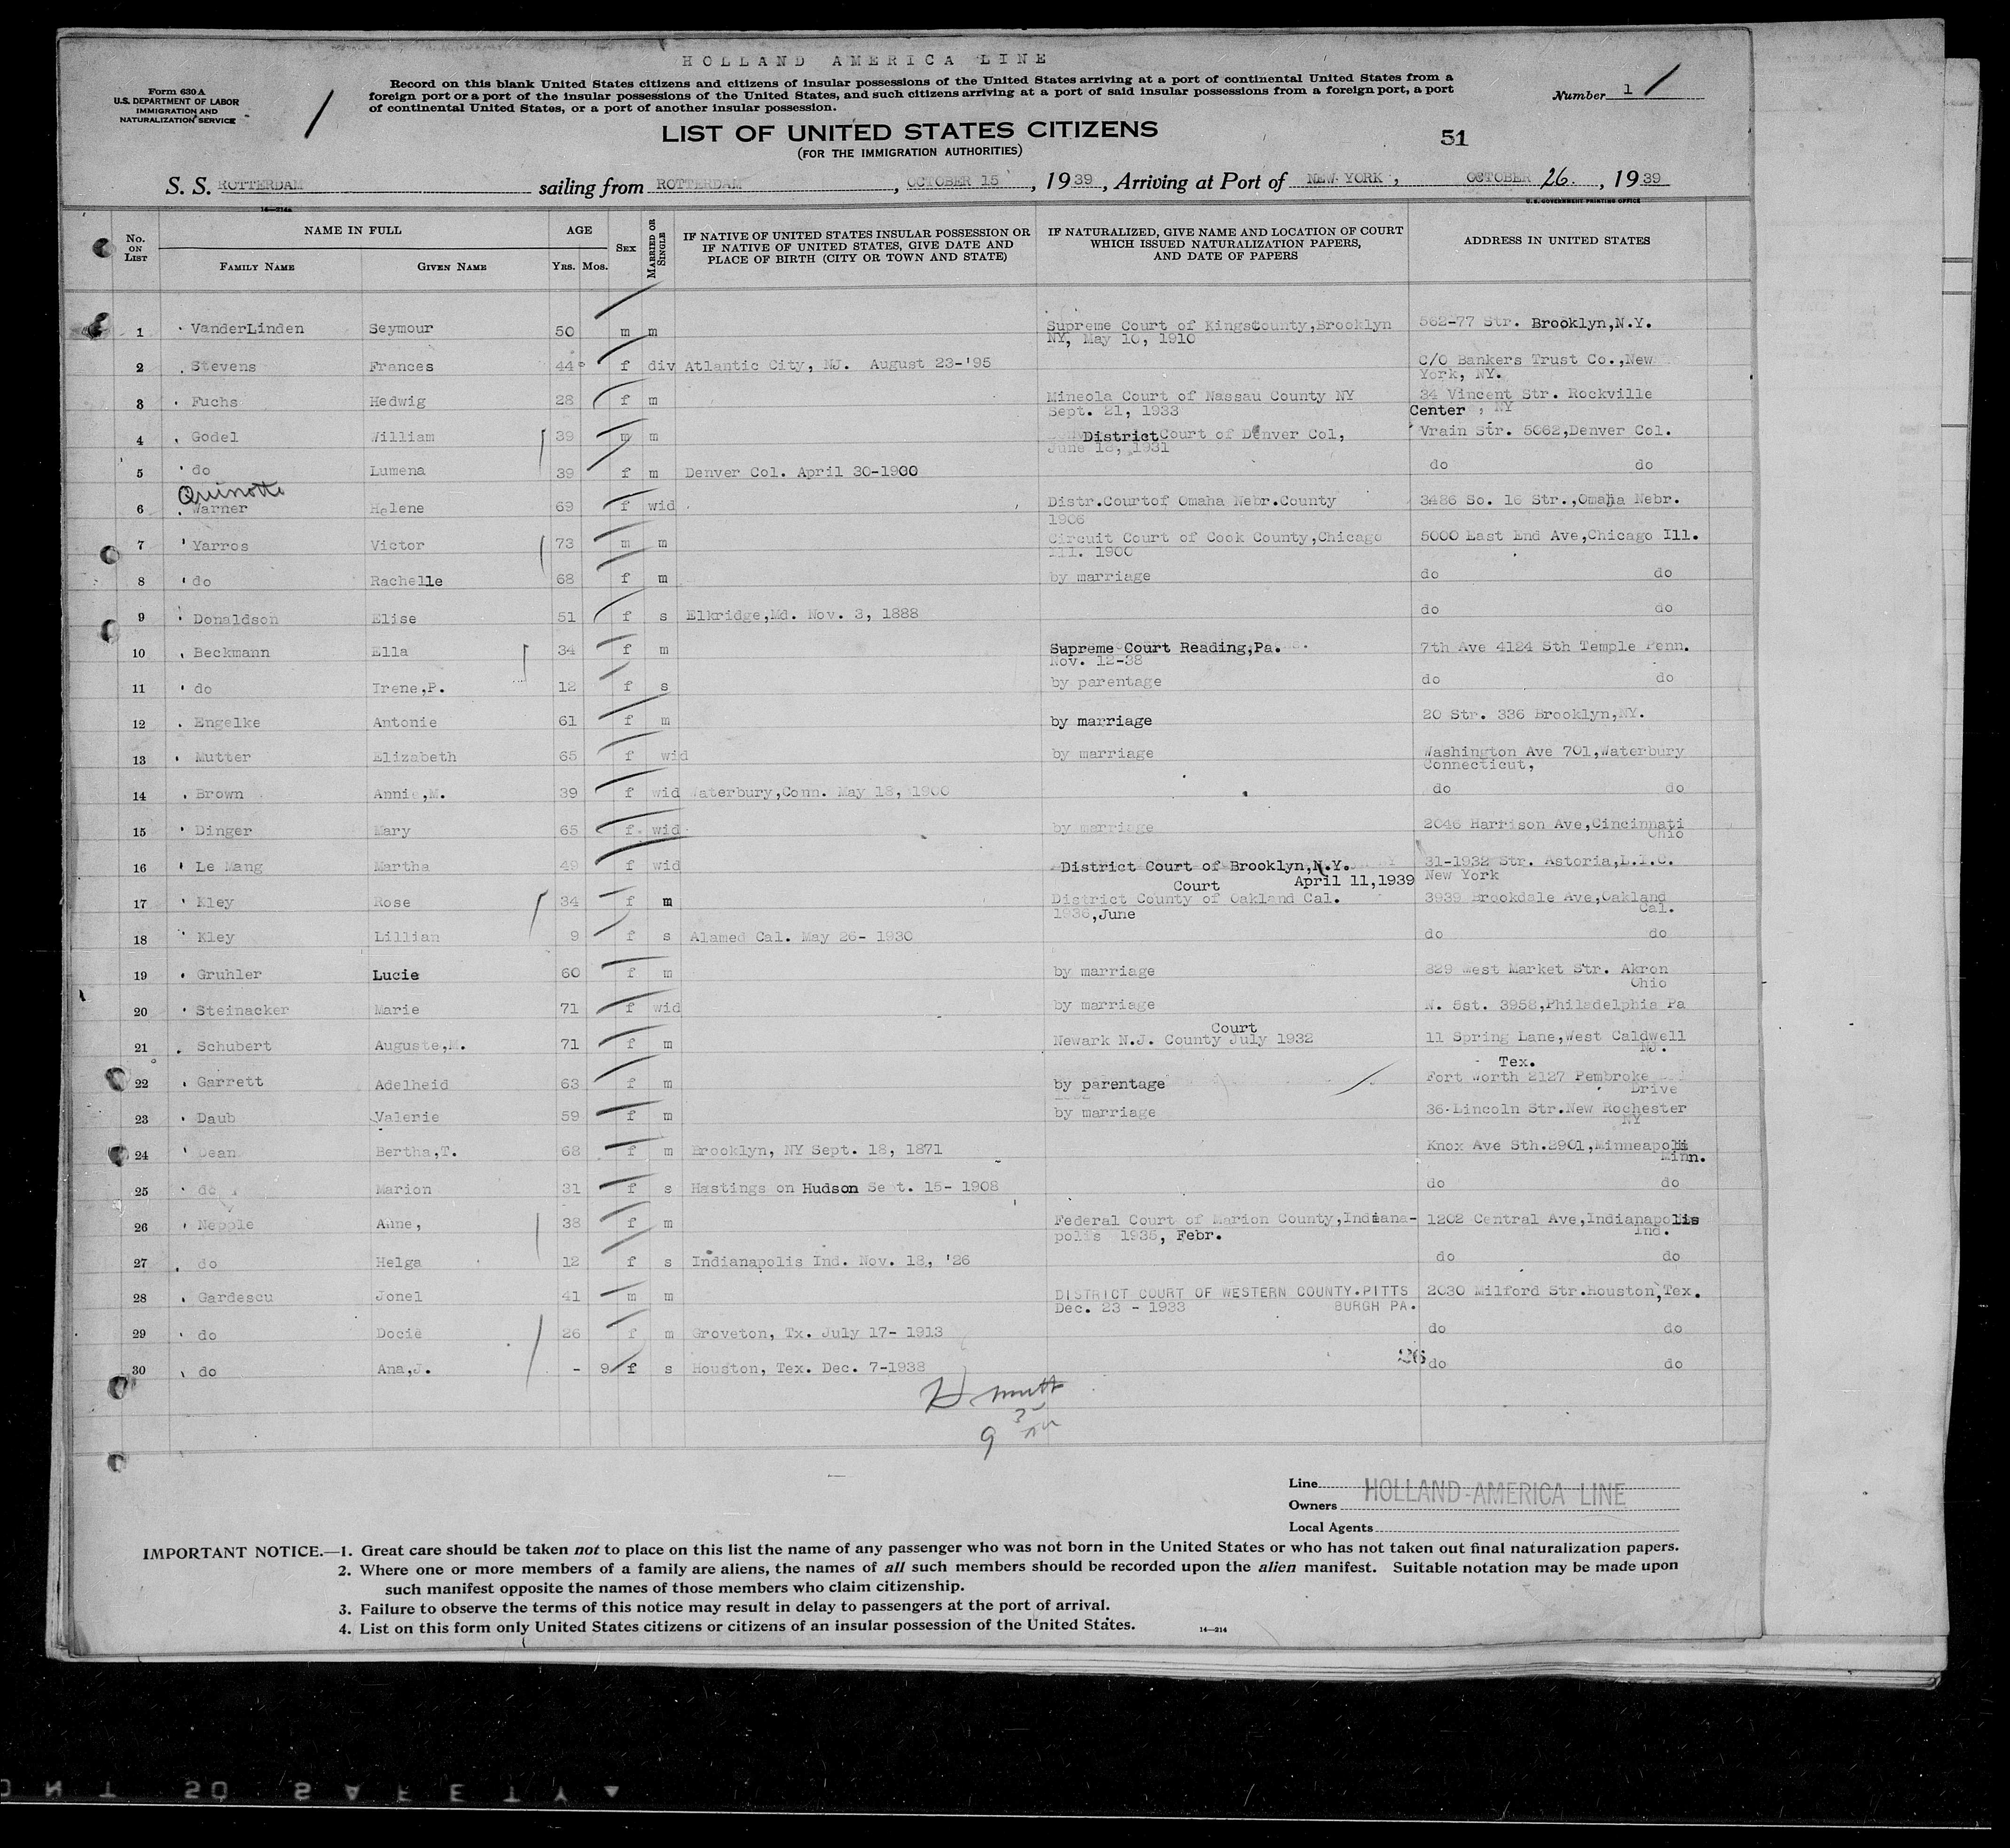 HOLLAND AMERICA LINE
Form 630 A
U.S. DEPARTMENT OF LABOR
IMMIGRATION AND
NATURALIZATION SERVICE
Record on this blank United States citizens and citizens of insular possessions of the United States arriving at a port of continental United States from a
foreign port or a port of the insular possessions of the United States, and such citizens arriving at a port of said insular possessions from a foreign port, a port
of continental United States, or a port of another insular possession.
Number 1
LIST OF UNITED STATES CITIZENS
(FOR THE IMMIGRATION AUTHORITIES)
51
S. S. ROTTERDAM sailing from ROTTERDAM, OCTOBER 15, 1939, Arriving at Port of NEW YORK, OCTOBER 26., 1939
14—214a
U. S. GOVERNMENT PRINTING OFFICE
No. ON LIST
NAME IN FULL
FAMILY NAME GIVEN NAME
AGE
YRS. MOS.
SEX
MARRIED OR SINGLE
IF NATIVE OF UNITED STATES INSULAR POSSESSION OR
IF NATIVE OF UNITED STATES, GIVE DATE AND
PLACE OF BIRTH (CITY OR TOWN AND STATE)
IF NATURALIZED, GIVE NAME AND LOCATION OF COURT
WHICH ISSUED NATURALIZATION PAPERS,
AND DATE OF PAPERS
ADDRESS IN UNITED STATES
1 VanderLinden Seymour 50 m m Supreme Court of KingsCounty,Brooklyn 562-77 Str. Brooklyn,N.Y.
NY, May 10, 1910
2 Stevens Frances 44 f div Atlantic City, NJ. August 23-'95 C/O Bankers Trust Co.,New
York, NY.
3 Fuchs Hedwig 28 f m Mineola Court of Nassau County NY 34 Vincent Str. Rockville
Sept. 21, 1933 Center, NY
4 Godel William 39 m m District Court of Denver Col, Vrain Str. 5062,Denver Col.
June 18, 1931
5 do Lumena 39 f m Denver Col. April 30-1900 do do
Quinotte
6 Warner Helene 69 f wid Distr.Courtof Omaha Nebr.County 3486 So. 16 Str.,Omaha Nebr.
1906
7 Yarros Victor 73 m m Circuit Court of Cook County,Chicago 5000 East End Ave,Chicago Ill.
Ill. 1900
8 do Rachelle 68 f m by marriage do do
9 Donaldson Elise 51 f s Elkridge,Md. Nov. 3, 1888 do do
10 Beckmann Ella 34 f m Supreme Court Reading,Pa. 7th Ave 4124 Sth Temple Penn.
Nov. 12-38
11 do Irene,P. 12 f s by parentage do do
12 Engelke Antonie 61 f m by marriage 20 Str. 336 Brooklyn,NY.
13 Mutter Elizabeth 65 f wid by marriage Washington Ave 701,Waterbury
Connecticut,
14 Brown Annie,M. 39 f wid Waterbury,Conn. May 18, 1900 do do
15 Dinger Mary 65 f wid by marriage 2046 Harrison Ave,Cincinnati
Ohio
16 Le Mang Martha 49 f wid District Court of Brooklyn,N.Y. 31-1932 Str. Astoria,L.I.C.
April 11,1939 New York
17 Kley Rose 34 f m District County Court of Oakland Cal. 3939 Brookdale Ave,Oakland
1936,June Cal.
18 Kley Lillian 9 f s Alamed Cal. May 26- 1930 do do
19 Gruhler Lucie 60 f m by marriage 829 West Market Str. Akron
Ohio
20 Steinacker Marie 71 f wid by marriage N. 5st. 3958,Philadelphia Pa
21 Schubert Auguste,M. 71 f m Newark N.J. County Court July 1932 11 Spring Lane,West Caldwell
NJ.
Tex.
22 Garrett Adelheid 63 f m by parentage Fort Worth 2127 Pembroke
Drive
23 Daub Valerie 59 f m by marriage 36 Lincoln Str.New Rochester
NY
24 Dean Bertha,T. 68 f m Brooklyn, NY Sept. 18, 1871 Knox Ave Sth.2901,Minneapoli
Minn.
25 do Marion 31 f s Hastings on Hudson Sept. 15- 1908 do do
26 Nepple Anne, 38 f m Federal Court of Marion County,Indiana- 1202 Central Ave,Indianapolis
polis 1935, Febr. Ind.
27 do Helga 12 f s Indianapolis Ind. Nov. 18, '26 do do
28 Gardescu Jonel 41 m m DISTRICT COURT OF WESTERN COUNTY.PITTS 2030 Milford Str.Houston,Tex.
Dec. 23 - 1933 BURGH PA.
29 do Docie 26 f m Groveton, Tx. July 17- 1913 do do
30 do Ana,J. - 9 f s Houston, Tex. Dec. 7-1938 26 do do
9
Line HOLLAND-AMERICA LINE
Owners
Local Agents
IMPORTANT NOTICE.—1. Great care should be taken not to place on this list the name of any passenger who was not born in the United States or who has not taken out final naturalization papers.
2. Where one or more members of a family are aliens, the names of all such members should be recorded upon the alien manifest. Suitable notation may be made upon
such manifest opposite the names of those members who claim citizenship.
3. Failure to observe the terms of this notice may result in delay to passengers at the port of arrival.
4. List on this form only United States citizens or citizens of an insular possession of the United States.
14—214